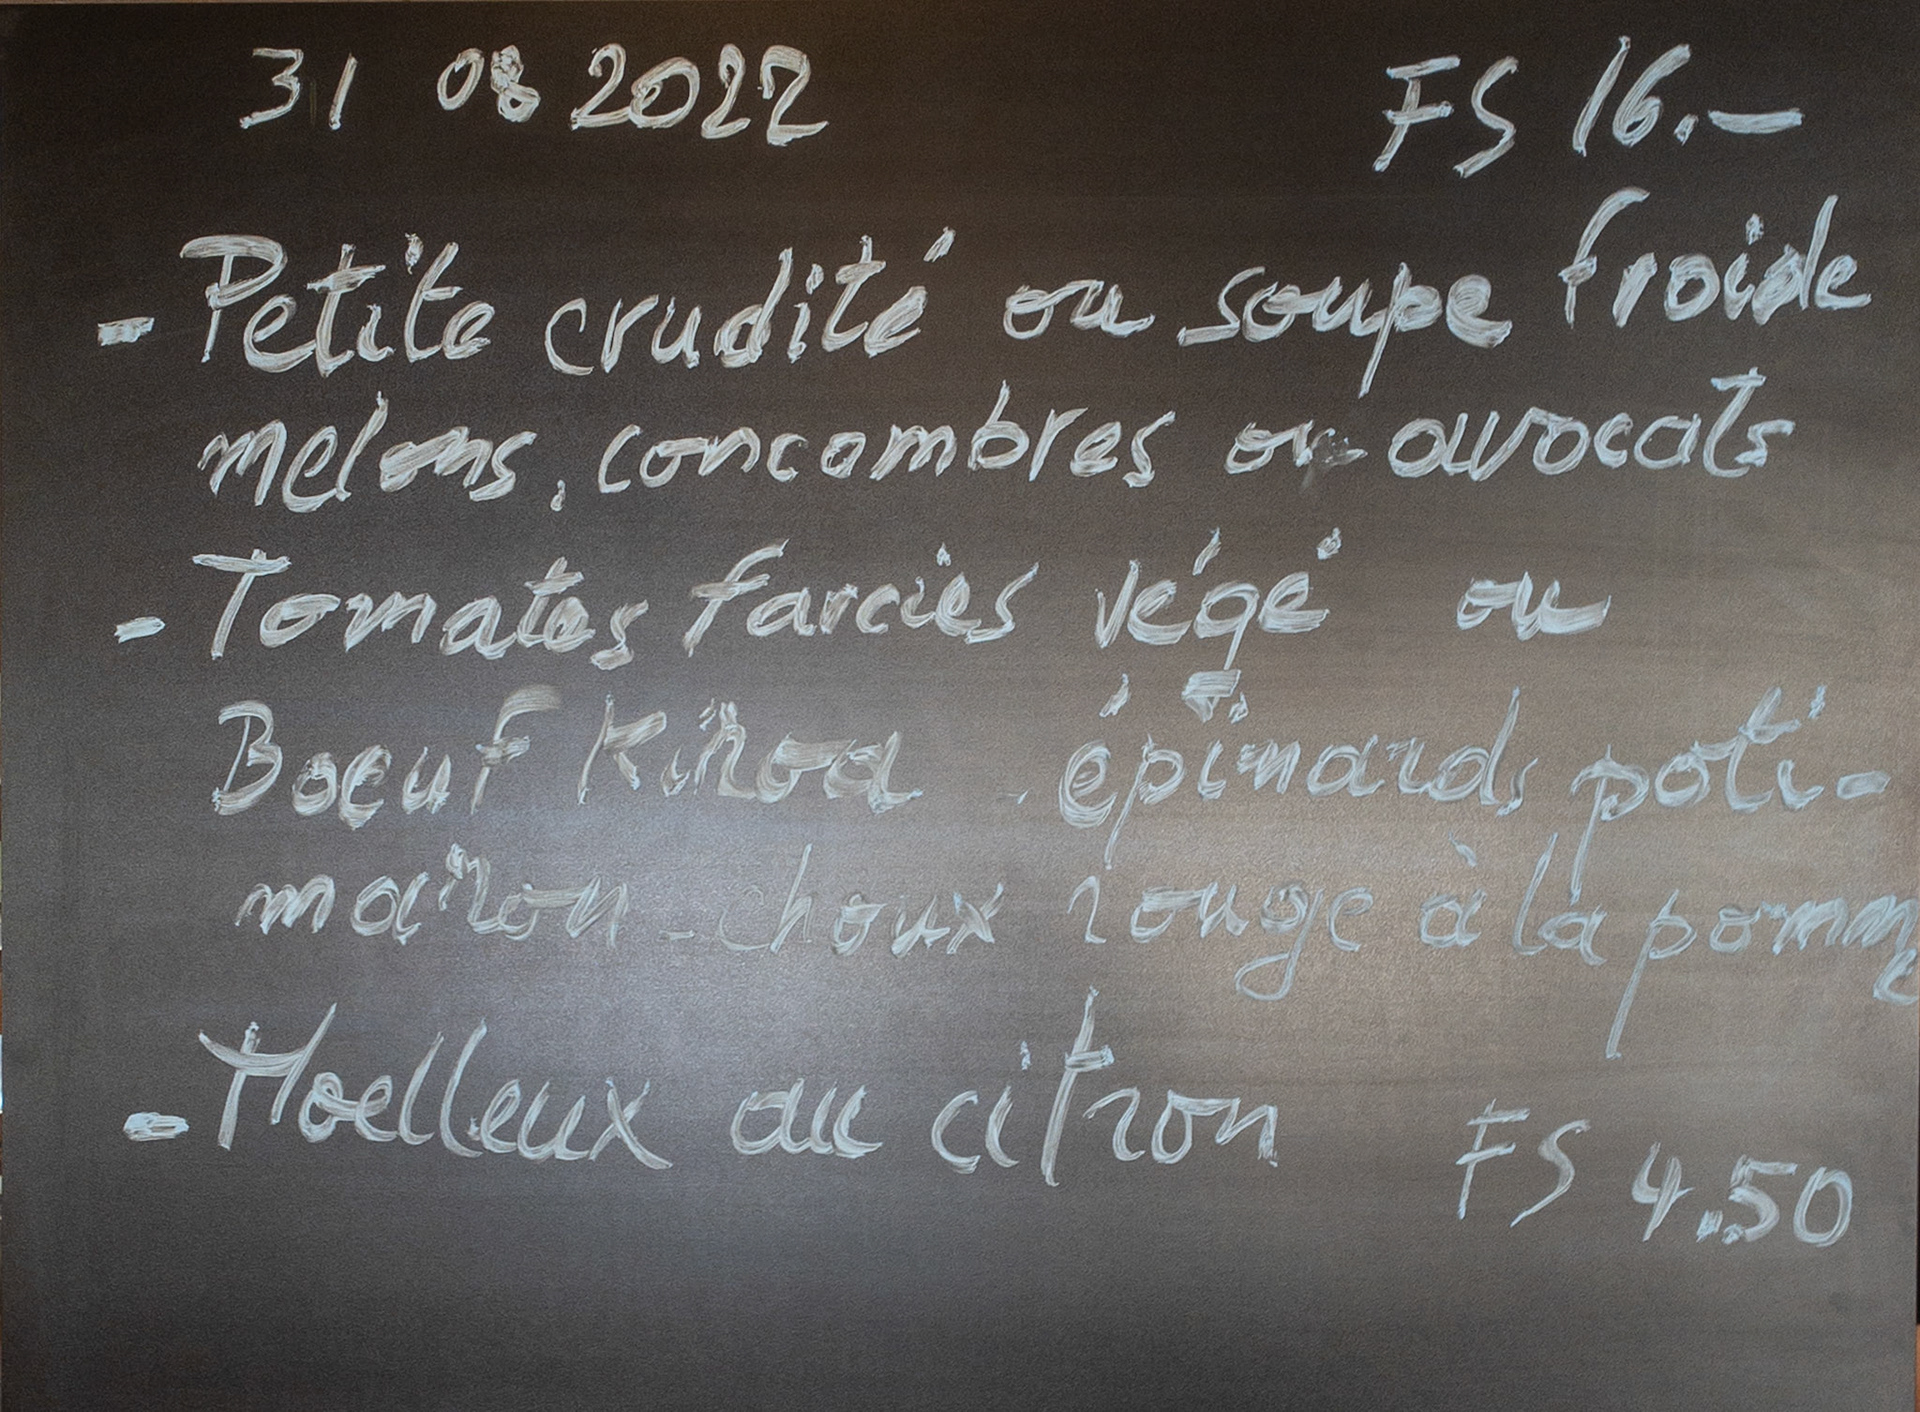 31 08 2022 FS 16.–
- Petite crudité ou soupe froide
melons, concombres ou avocats
- Tomates farcies végé ou
Boeuf Kinoa - épinards poti-
maron - choux rouge à la pomme
- Moelleux au citron FS 4.50